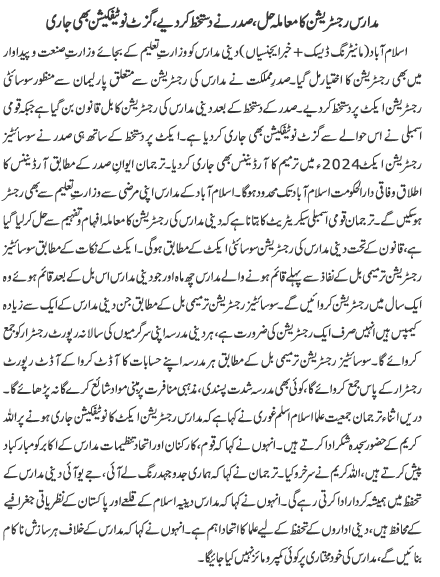 مدارس رجسٹریشن کا معاملہ حل، صدر نے دستخط کر دیے، گزٹ نوٹیفکیشن بھی جاری
اسلام آباد (مانیٹرنگ ڈیسک + خبر ایجنسیاں) دینی مدارس کو وزارتِ تعلیم کے بجائے وزارتِ صنعت و پیداوار
میں بھی رجسٹریشن کا اختیار مل گیا۔ صدر مملکت نے مدارس کی رجسٹریشن سے متعلق پارلیمان سے منظور سوسائٹی
رجسٹریشن ایکٹ پر دستخط کر دیے۔ صدر کے دستخط کے بعد دینی مدارس کی رجسٹریشن کا بل قانون بن گیا ہے جبکہ قومی
اسمبلی نے اس حوالے سے گزٹ نوٹیفکیشن بھی جاری کر دیا ہے۔ ایکٹ پر دستخط کے ساتھ ہی صدر نے سوسائٹیز
رجسٹریشن ایکٹ 2024ء میں ترمیم کا آرڈیننس بھی جاری کر دیا۔ ترجمان ایوانِ صدر کے مطابق آرڈیننس کا
اطلاق وفاقی دارالحکومت اسلام آباد تک محدود ہوگا۔ اسلام آباد کے مدارس اپنی مرضی سے وزارتِ تعلیم سے بھی رجسٹر
ہوسکیں گے۔ ترجمان قومی اسمبلی سیکریٹریٹ کا بتانا ہے کہ دینی مدارس کی رجسٹریشن کا معاملہ افہام و تفہیم سے حل کرلیا گیا
ہے، قانون کے تحت دینی مدارس کی رجسٹریشن سوسائٹی ایکٹ کے مطابق ہوگی۔ ایکٹ کے نکات کے مطابق سوسائٹیز
رجسٹریشن ترمیمی بل کے نفاذ سے پہلے قائم ہونے والے مدارس چھ ماہ اور جو دینی مدارس اس بل کے بعد قائم ہوئے وہ
ایک سال میں رجسٹریشن کروائیں گے۔ سوسائٹیز رجسٹریشن ترمیمی بل کے مطابق جن دینی مدارس کے ایک سے زیادہ
کیمپس ہیں انہیں صرف ایک رجسٹریشن کی ضرورت ہے، ہر دینی مدرسہ اپنی سرگرمیوں کی سالانہ رپورٹ رجسٹرار کو جمع
کروائے گا۔ سوسائٹیز رجسٹریشن ترمیمی بل کے مطابق ہر مدرسہ اپنے حسابات کا آڈٹ کروا کے آڈٹ رپورٹ
رجسٹرار کے پاس جمع کروائے گا، کوئی بھی مدرسہ شدت پسندی، مذہبی منافرت پر مبنی مواد شائع کرے گا نہ پڑھائے گا۔
دریں اثناء ترجمان جمعیت علما اسلام اسلم غوری نے کہا ہے کہ مدارس رجسٹریشن ایکٹ کا نوٹیفکیشن جاری ہونے پر اللہ
کریم کے حضور سجدہ شکر ادا کرتے ہیں۔ انہوں نے کہا کہ قوم، کارکنان اور اتحاد تنظیمات مدارس کے اکابر کو مبارکباد
پیش کرتے ہیں، اللہ کریم نے سرخرو کیا۔ ترجمان نے کہا کہ ہماری جدوجہد رنگ لے آئی، جے یو آئی دینی مدارس کے
تحفظ میں ہمیشہ کردار ادا کرتی رہے گی۔ انہوں نے کہا کہ مدارس دینیہ اسلام کے قلعے اور پاکستان کے نظریاتی جغرافیے
کے محافظ ہیں، دینی اداروں کے تحفظ کے لیے علما کا اتحاد اہم ہے۔ انہوں نے کہا کہ مدارس کے خلاف ہر سازش ناکام
بنائیں گے، مدارس کی خود مختاری پر کوئی کمپرومائز نہیں کیا جائیگا